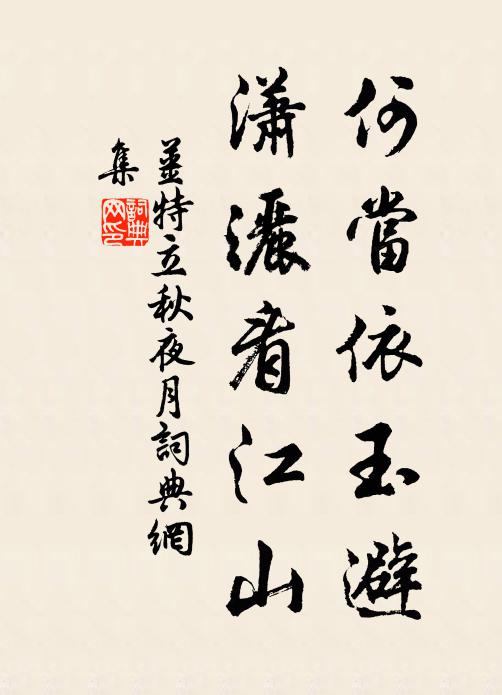 何當依玉避
瀟灑看江山
薑特立秋夜月詞典網
集
詞典网印